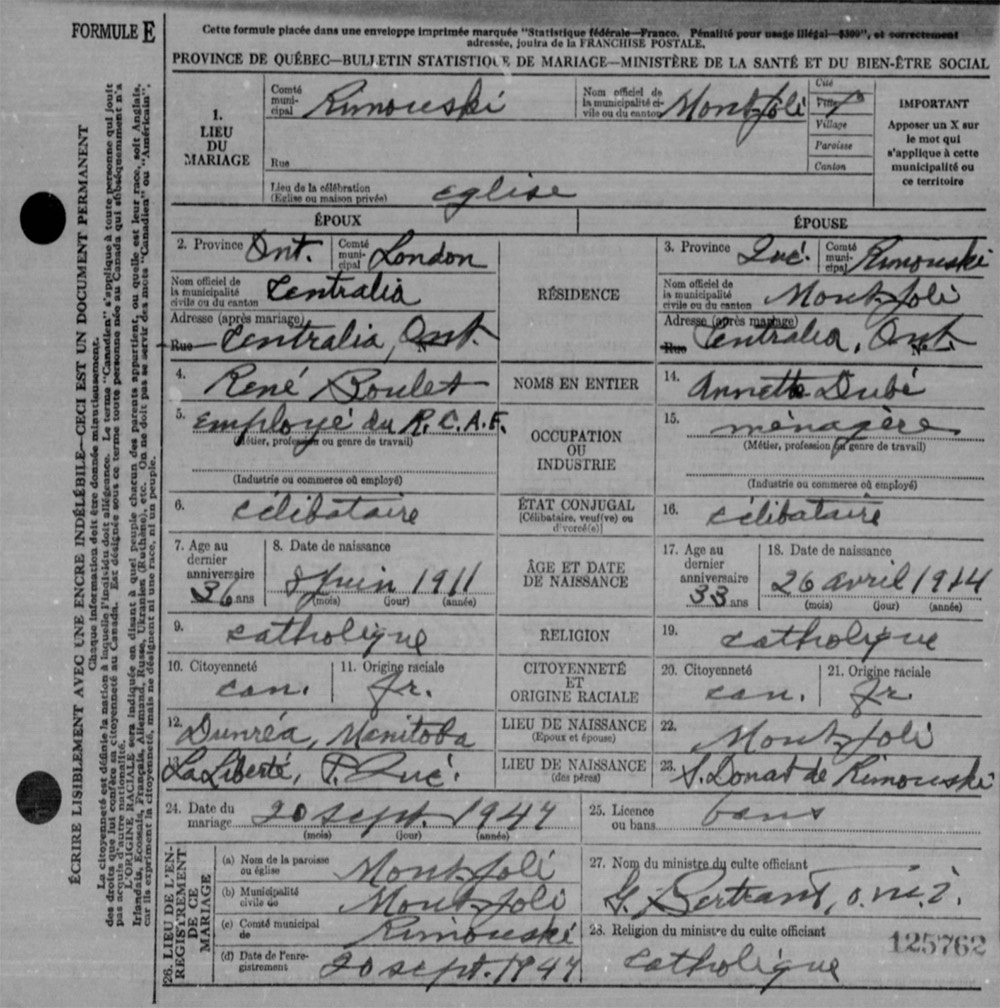 FORMULE E
Cette formule placée dans une enveloppe imprimée marquée "Statistique fédérale—Franco. Pénalité pour usage illégal—$300", et correctement
adressée, jouira de la FRANCHISE POSTALE.
PROVINCE DE QUÉBEC—BULLETIN STATISTIQUE DE MARIAGE—MINISTÈRE DE LA SANTÉ ET DU BIEN-ÊTRE SOCIAL
ÉCRIRE LISIBLEMENT AVEC UNE ENCRE INDÉLÉBILE—CECI EST UN DOCUMENT PERMANENT
Chaque information doit être donnée minutieusement.
La citoyenneté est définie la nation à laquelle l'individu doit allégeance. Le terme "Canadien" s'applique à toute personne qui jouit
des droits que lui confère sa citoyenneté au Canada. Est désignée sous ce terme toute personne née au Canada qui subséquemment n'a
pas acquis d'autre nationalité.
L'ORIGINE RACIALE sera indiquée en disant à quel peuple chacun des parents appartient, ou quelle est leur race, soit Anglais,
Irlandais, Ecossais, Français, Allemand, Russe, Ukranien (Ruthène), etc. On ne doit pas se servir des mots "Canadien" ou "Américain",
car ils expriment la citoyenneté, mais ne désignent ni une race, ni un peuple.
1.
LIEU
DU
MARIAGE
Comté municipal Rimouski
Nom officiel de la municipalité civile ou du canton Mont-Joli
Cité
Ville X
Village
Paroisse
Canton
IMPORTANT
Apposer un X sur
le mot qui
s'applique à cette
municipalité ou
ce territoire
Rue
Lieu de la célébration
(Eglise ou maison privée) église
ÉPOUX
ÉPOUSE
2. Province Ont. Comté municipal London
RÉSIDENCE
3. Province Qué. Comté municipal Rimouski
Nom officiel de la municipalité civile ou du canton Centralia
Nom officiel de la municipalité civile ou du canton Mont-Joli
Adresse (après mariage)
Rue Centralia, Ont.
Adresse (après mariage)
Rue Centralia, Ont.
4. René Boulet
NOMS EN ENTIER
14. Annette Dubé
5. Employé du R.C.A.F.
(Métier, profession ou genre de travail)
(Industrie ou commerce où employé)
OCCUPATION
OU
INDUSTRIE
15. ménagère
(Métier, profession ou genre de travail)
(Industrie ou commerce où employé)
6. célibataire
ÉTAT CONJUGAL
[Célibataire, veuf(ve) ou
divorcé(e)]
16. célibataire
7. Age au
dernier
anniversaire
36 ans
8. Date de naissance
8 juin 1911
(mois) (jour) (année)
ÂGE ET DATE
DE NAISSANCE
17. Age au
dernier
anniversaire
33 ans
18. Date de naissance
26 avril 1914
(mois) (jour) (année)
9. catholique
RELIGION
19. catholique
10. Citoyenneté
can.
11. Origine raciale
fr.
CITOYENNETÉ
ET
ORIGINE RACIALE
20. Citoyenneté
can.
21. Origine raciale
fr
12. Dunréa, Manitoba
LIEU DE NAISSANCE
(Epoux et épouse)
22. Mont-Joli
13. La Liberté, P. Qué.
LIEU DE NAISSANCE
(des pères)
23. S. Donat de Rimouski
24. Date du
mariage 20 sept. 1947
(mois) (jour) (année)
25. Licence
ou bans bans
26. LIEU DE L'ENREGISTREMENT
DE CE
MARIAGE
(a) Nom de la paroisse
ou église Mont-Joli
(b) Municipalité
civile de Mont-Joli
(c) Comté municipal
de Rimouski
(d) Date de l'enregistrement
20 sept. 1947
27. Nom du ministre du culte officiant
G. Bertrand, o.m.i.
28. Religion du ministre du culte officiant
catholique
125762